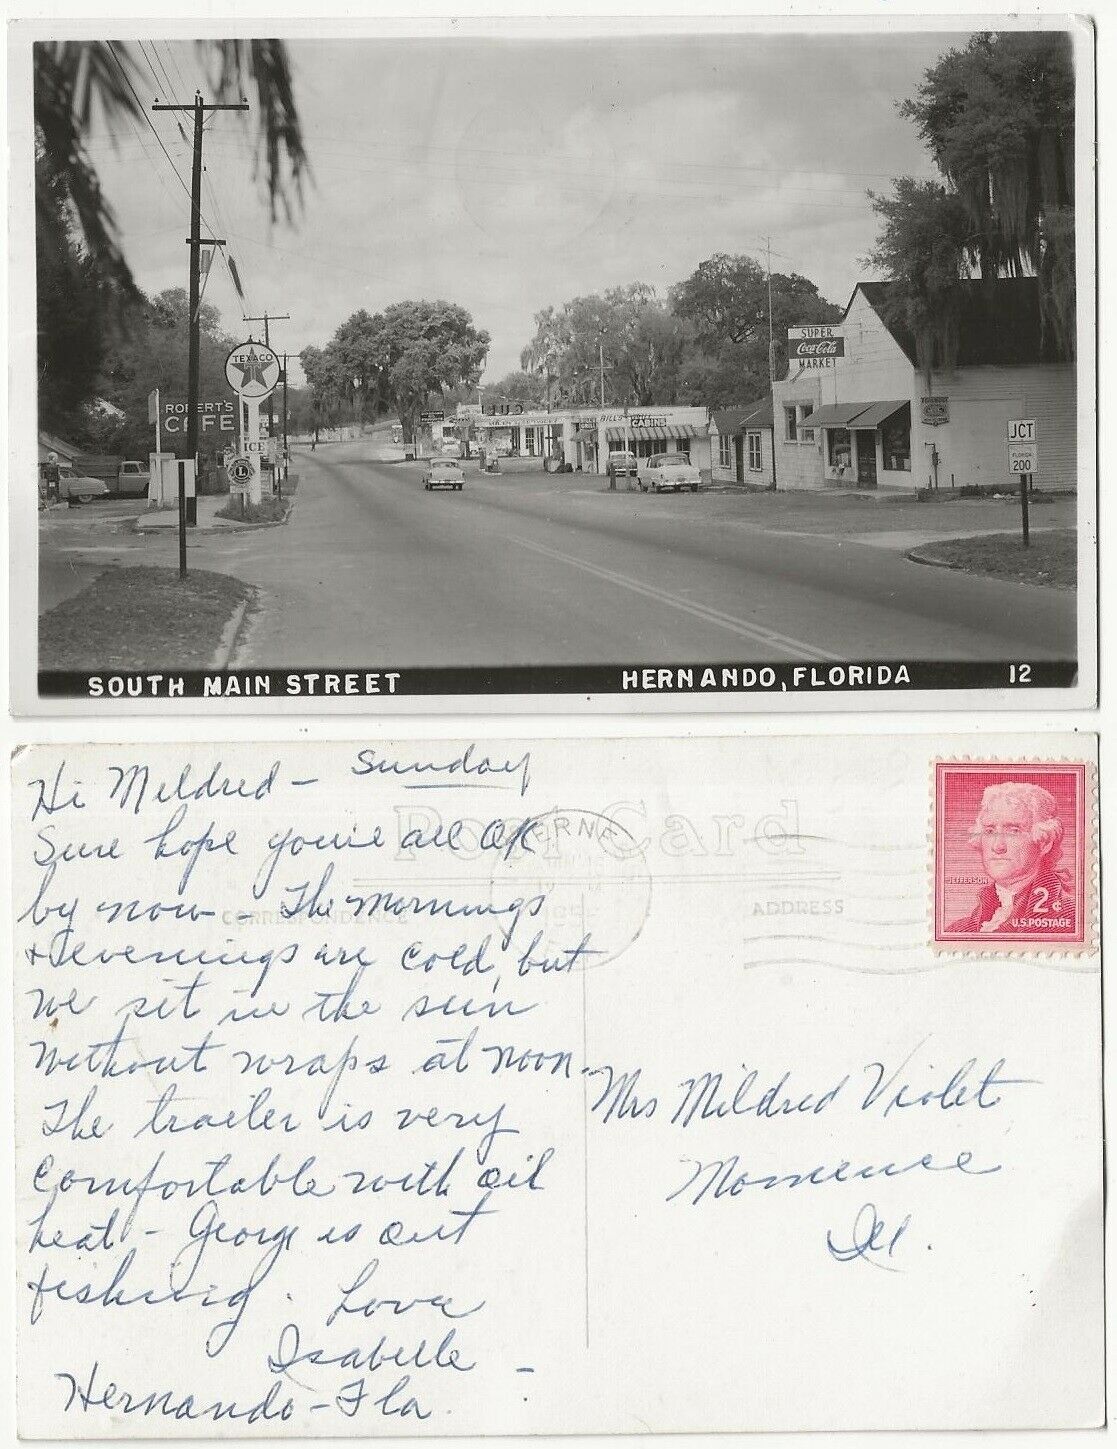 TEXACO
ROBERT'S
CAFE
ICE
L
GULF
BILL'S
CABINS
SUPER
Coca-Cola
MARKET
JCT
FLORIDA
200
SOUTH MAIN STREET
HERNANDO, FLORIDA
12
Post Card
CORRESPONDENCE
ADDRESS
JEFFERSON
2¢
U.S. POSTAGE
Sunday
Hi Mildred -
Sure hope you're all OK
by now - The mornings
& evenings are cold, but
we sit in the sun
without wraps at noon.
The trailer is very
comfortable with oil
heat - George is out
fishing. Love
Isabelle -
Hernando - Fla.
Mrs Mildred Violet
Momence
Ill.